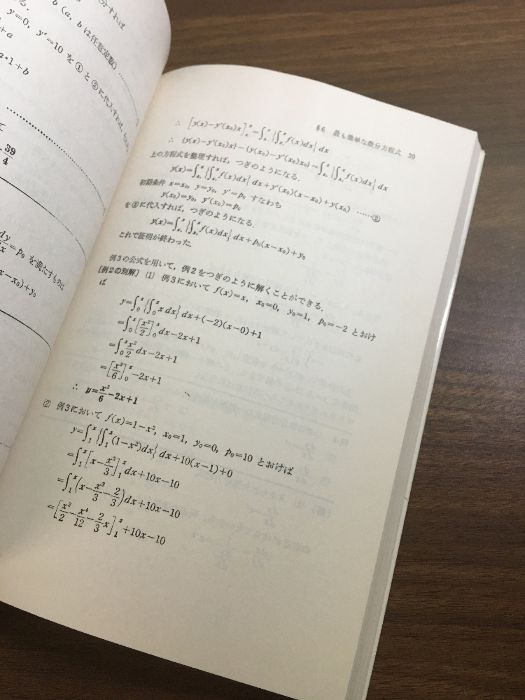 y=0, y'=10 を①と②に代入すれば,
+a
a·1+b
39
4
dy
=p₀ を満たすものは
x-x₀)+y₀
-x₀)+y₀
§6 最も簡単な微分方程式 39
∴ [y(x)-y'(x₀)x]ˣₓ₀=∫ˣₓ₀{∫ˣₓ₀f(x)dx}dx
∴ (y(x)-y'(x₀)x)-(y(x₀)-y'(x₀)x₀)=∫ˣₓ₀{∫ˣₓ₀f(x)dx}dx
上の方程式を整理すれば, つぎのようになる.
y(x)=∫ˣₓ₀{∫ˣₓ₀f(x)dx}dx+y'(x₀)(x-x₀)+y(x₀) ……②
初期条件 x=x₀, y=y₀, y'=p₀ すなわち
y(x₀)=y₀, y'(x₀)=p₀
を②に代入すれば, つぎのようになる.
y(x)=∫ˣₓ₀{∫ˣₓ₀f(x)dx}dx+p₀(x-x₀)+y₀
これで証明が終わった.
例3の公式を用いて, 例2をつぎのように解くことができる.
〔例2の別解〕 (1) 例3において f(x)=x, x₀=0, y₀=1, p₀=-2 とおけ
ば
y=∫₀ˣ{∫₀ˣx dx}dx+(-2)(x-0)+1
=∫₀ˣ[x²/2]₀ˣdx-2x+1
=∫₀ˣx²/2 dx-2x+1
=[x³/6]₀ˣ-2x+1
∴ y=x³/6-2x+1
(2) 例3において f(x)=1-x², x₀=1, y₀=0, p₀=10 とおけば
y=∫₁ˣ{∫₁ˣ(1-x²)dx}dx+10(x-1)+0
=∫₁ˣ[x-x³/3]₁ˣdx+10x-10
=∫₁ˣ(x-x³/3-2/3)dx+10x-10
=[x²/2-x⁴/12-2/3x]₁ˣ+10x-10